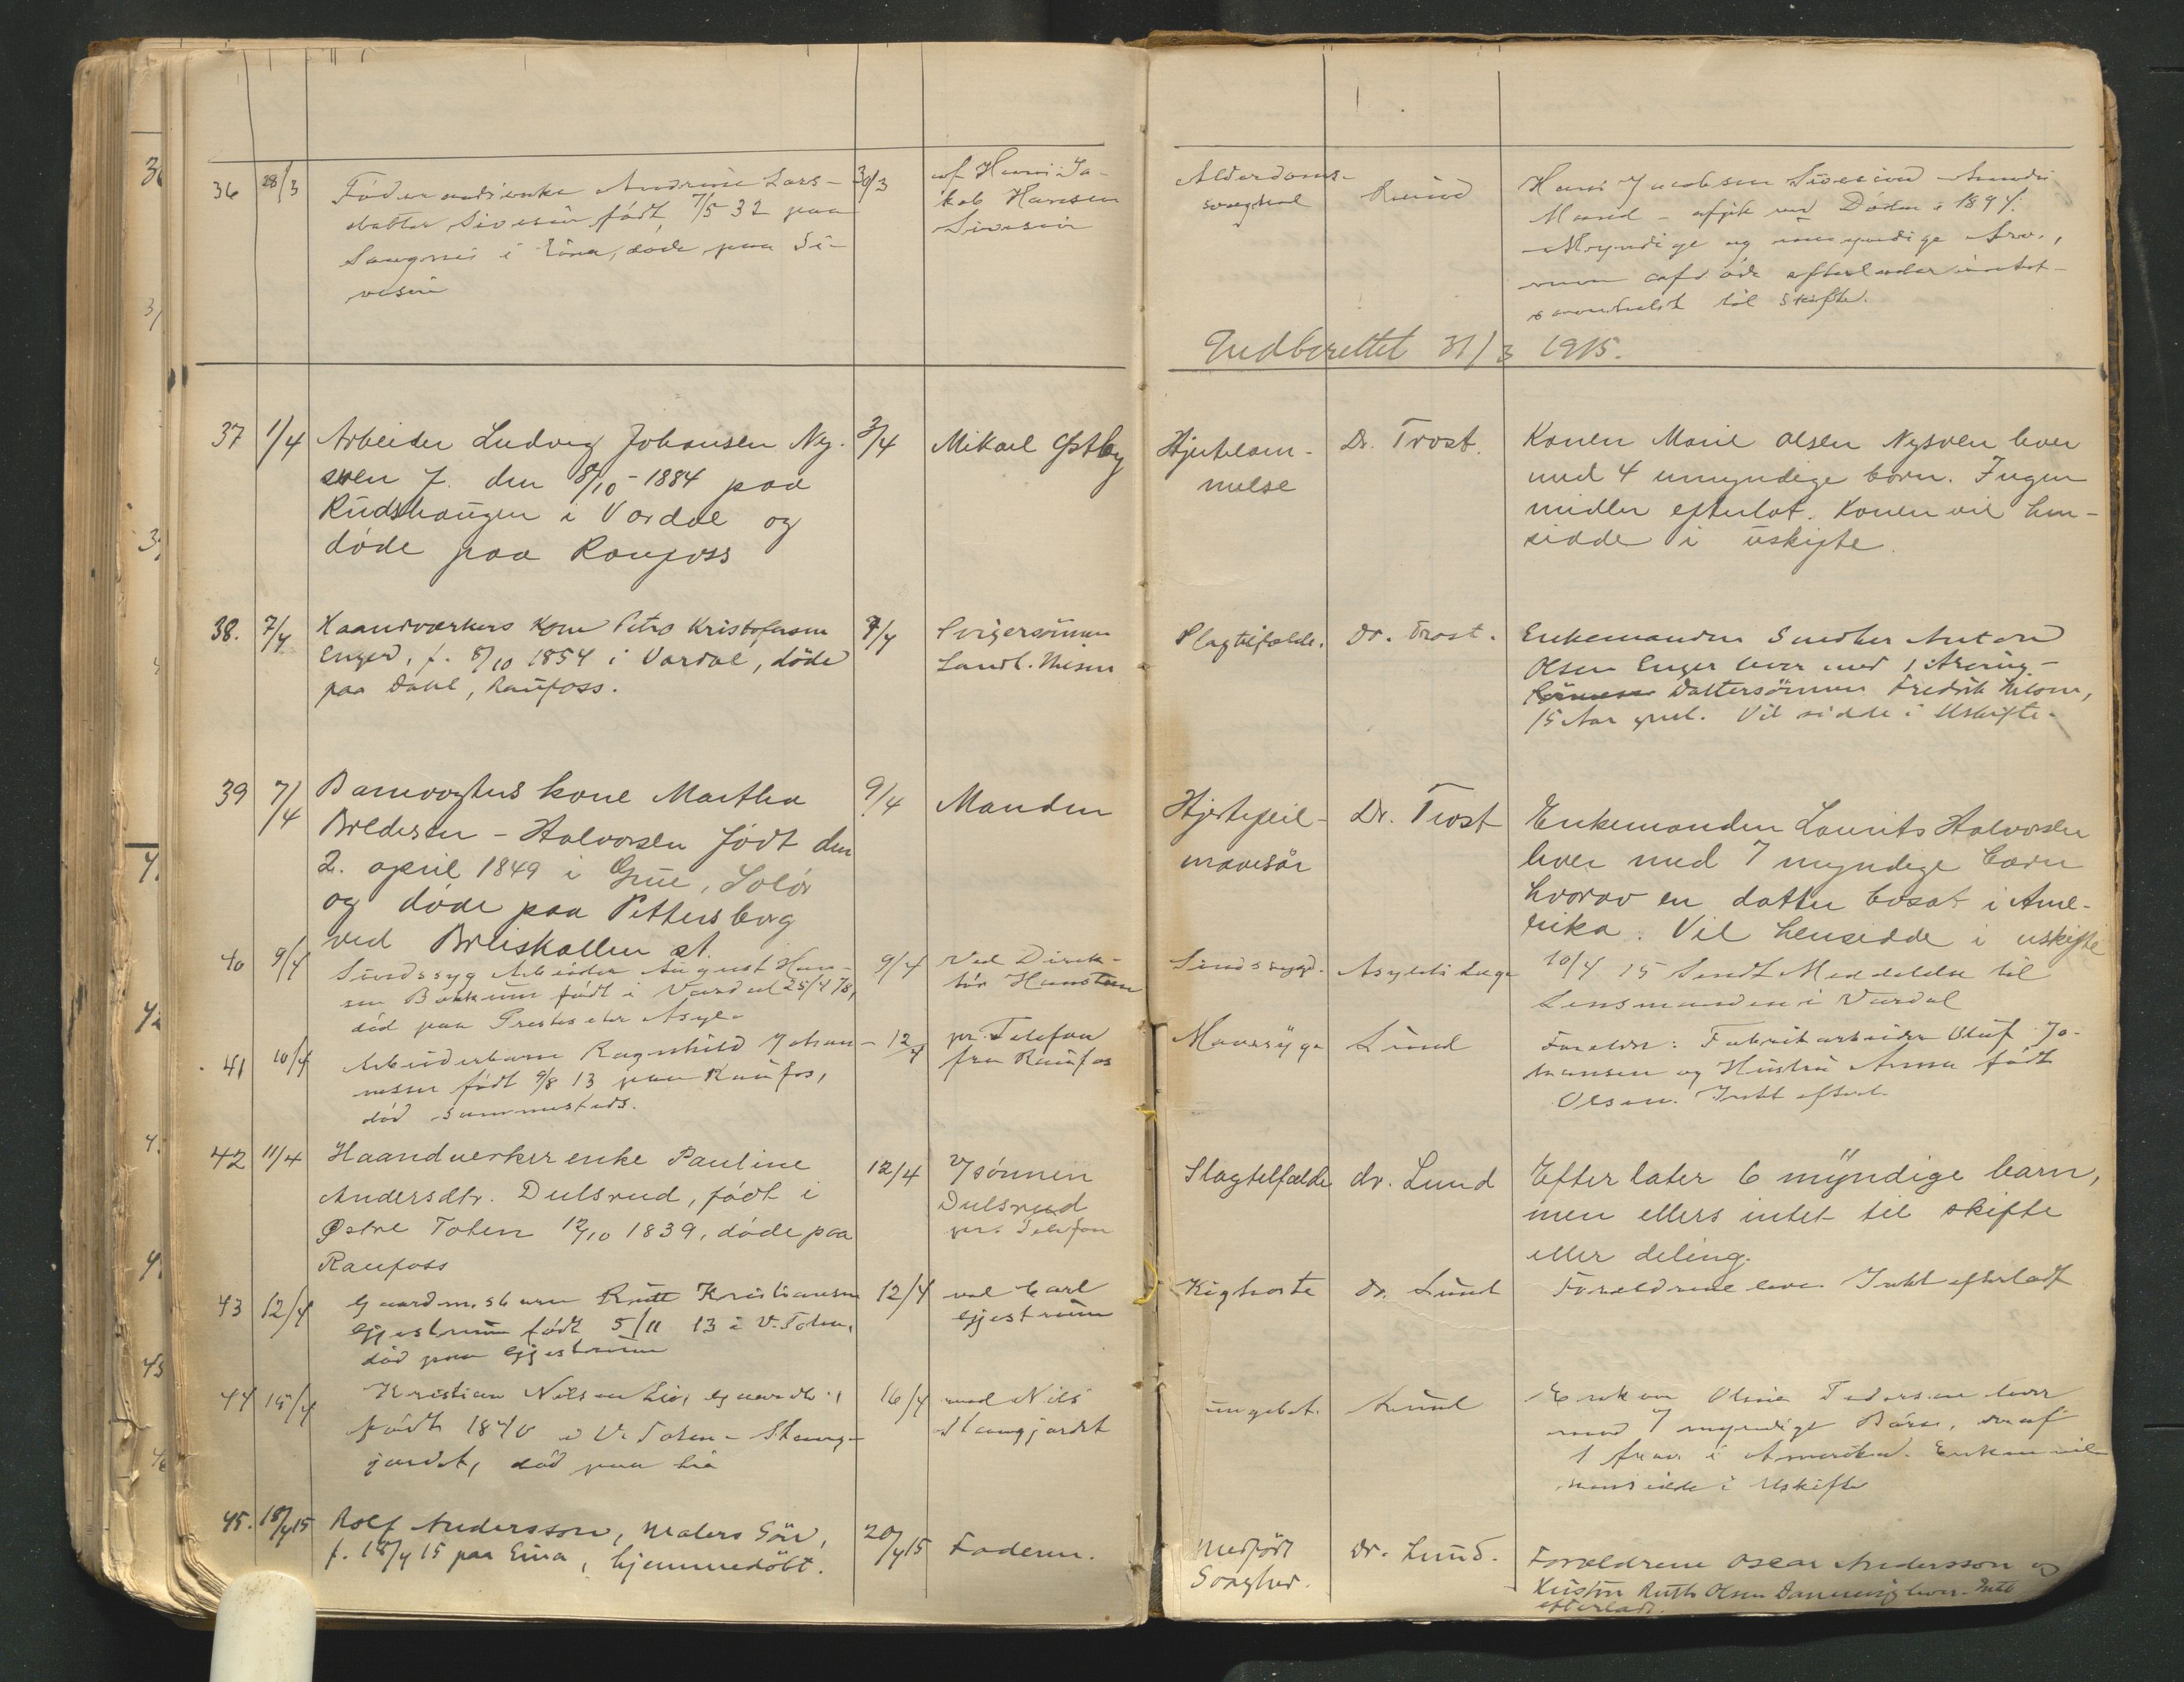 36 28/3 Andrine Lars- 30/3 af Hans Ja-
datter Sivesin født 7/5 32 paa kob Hansen
i Eina, døde paa Si- Sivesin
vesin
Alderdoms-
svaghed Hans Jacobsen Sivesind
Mand - afgik ved Døden i 1894.
Myndige og umyndige Arv.,
men afdøde efterlader intet-
somhelst til Skifte.
Indberettet 31/3 1915.
37 1/4 Arbeider Ludvig Johansen Ny- 3/4 Mikael Østby
sven f. den 8/10-1884 paa
Rudshaugen i Vardal og
døde paa Raufoss
Hjertelam- Dr. Trost. Konen Marie Olsen Nysven lever
melse med 4 umyndige børn. Ingen
midler efterlat. Konen vil hen-
sidde i uskifte.
38. 7/4 Haandværkers Kone Petra Kristofersen /4 Svigersønnen
Enger, f. 8/10 1854 i Vardal, døde Nilsen
paa Dahl, Raufoss.
Slagtilfælde. Dr. Trost. Enkemanden Snedker Anton
Olsen Enger lever med 1 Arving-
Dattersønnen Fredrik Nilsen,
15 Aar gml. Vil sidde i Uskifte.
39 7/4 Banevogters kone Martha 9/4 Manden
Bredesen - Halvorsen født den
2. april 1849 i Grue, Solør
og døde paa Pettersborg
ved Breiskallen st.
Hjertefeil- Dr. Trost Enkemanden Laurits Halvorsen
mavesår lever med 7 myndige børn
hvorav en datter bosat i Ame-
rika. Vil hensidde i uskifte
40 9/4 Sindssyg Arbeider August Han- 9/4 Ved Direk-
sen Bakkum født i Vardal 25/4 78, tør Hansteen
død paa Presteseter Asyl.
Sindssygd. Asylets Læge 10/4 15 Sendt Meddelelse til
Lensmanden i Vardal
41 10/4 Arbeiderbarn Ragnhild Johan- 12/4 pr. Telefon
nesen født 9/8 13 paa Raufos, fra Raufos
død sammesteds.
Mavesyge Lund Forældre: Fabrikarbeider Oluf Jo-
hansen og Hustru Anna født
Olsen. Intet efterl.
42 11/4 Haandverker enke Pauline 12/4 v/ sønnen
Andersdtr. Dulsrud, født i Dulsrud
Østre Toten 12/10 1839, døde paa pr. Telefon
Raufoss
Slagtelfælde dr. Lund Efterlater 6 myndige barn,
men ellers intet til skifte
eller deling.
43 12/4 Gaardm. s barn Kristiansen 12/4 ved Carl
Gjestrum født 5/11 13 i V. Toten, Gjestrum
død paa Gjestrum
Kighoste Dr. Lund Forældrene lever. Intet efterladt
44 15/4 Kristian Nilsen Lia, Gaardbr., 16/4 ved Nils
født 1840 i V. Toten - Stang- Stangjordet
jordet, død paa Lia
Lund Enken Oline Pedersen lever
med 7 myndige Børn, deraf
1 i Amerika. Enken vil
hensidde i Uskifte
45. 18/4 15 Rolf Andersson, Malers Søn, 20/4 15 Faderen.
f. 18/4 15 paa Eina, hjemmedøbt.
Medfødt Dr. Lund. Forældrene Oscar Andersson og
Svaghed. Hustru Ruth Olsen lever. Intet
efterladt.